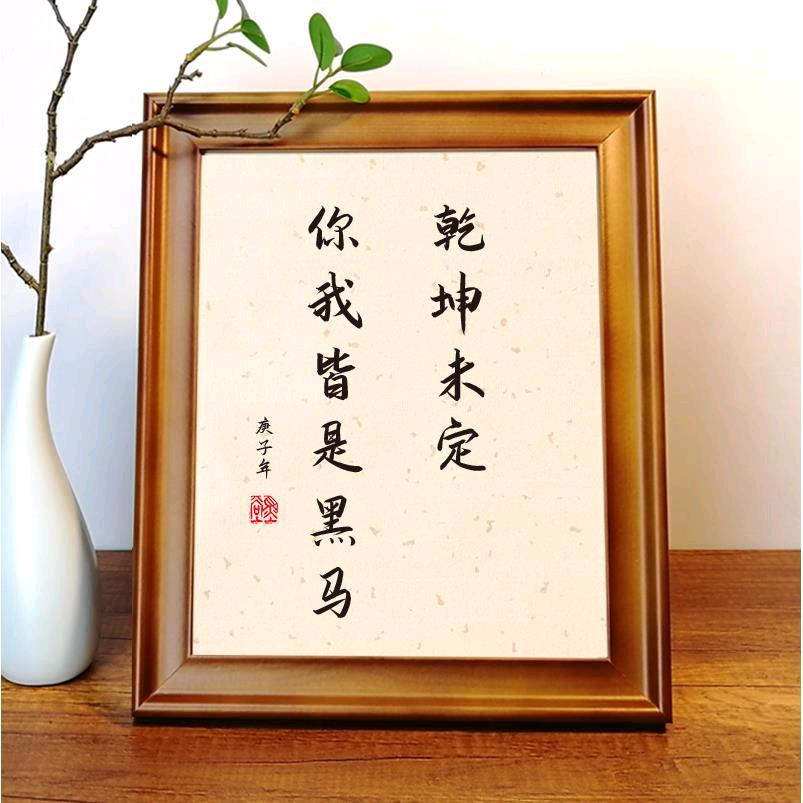 乾坤未定
你我皆是黑马
庚子年